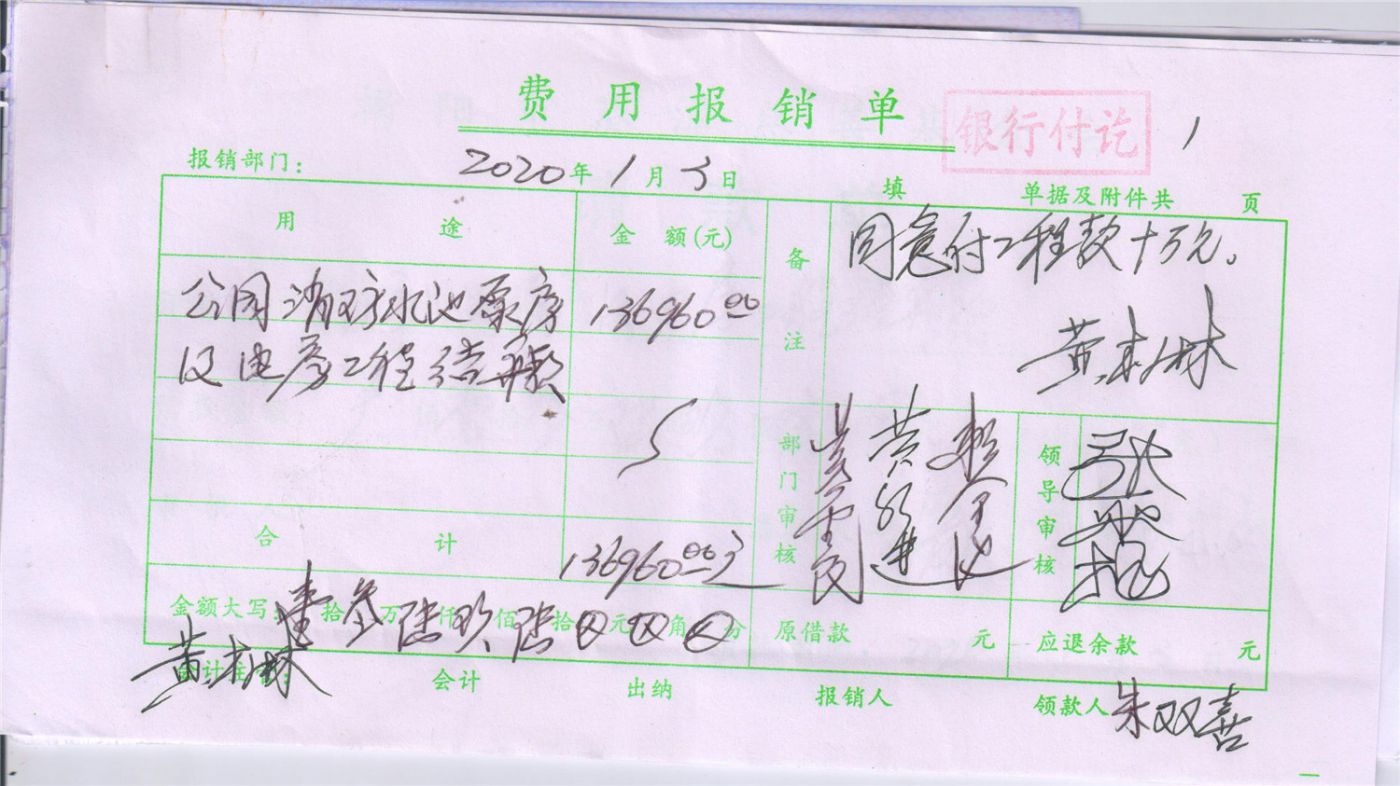 费用报销单
银行付讫
1
报销部门： 2020年1月3日 填 单据及附件共 页
用途 金额(元) 备注
同意付工程款十万元。
黄树林
公园消防水池泵房 136960.00
及电房工程结算款
部门审核
领导审核
合计 136960.00
金额大写：壹拾叁万陆仟玖佰陆拾⊗元⊗角⊗分 原借款 元 应退余款 元
黄树林
会计 出纳 报销人 领款人 朱双喜